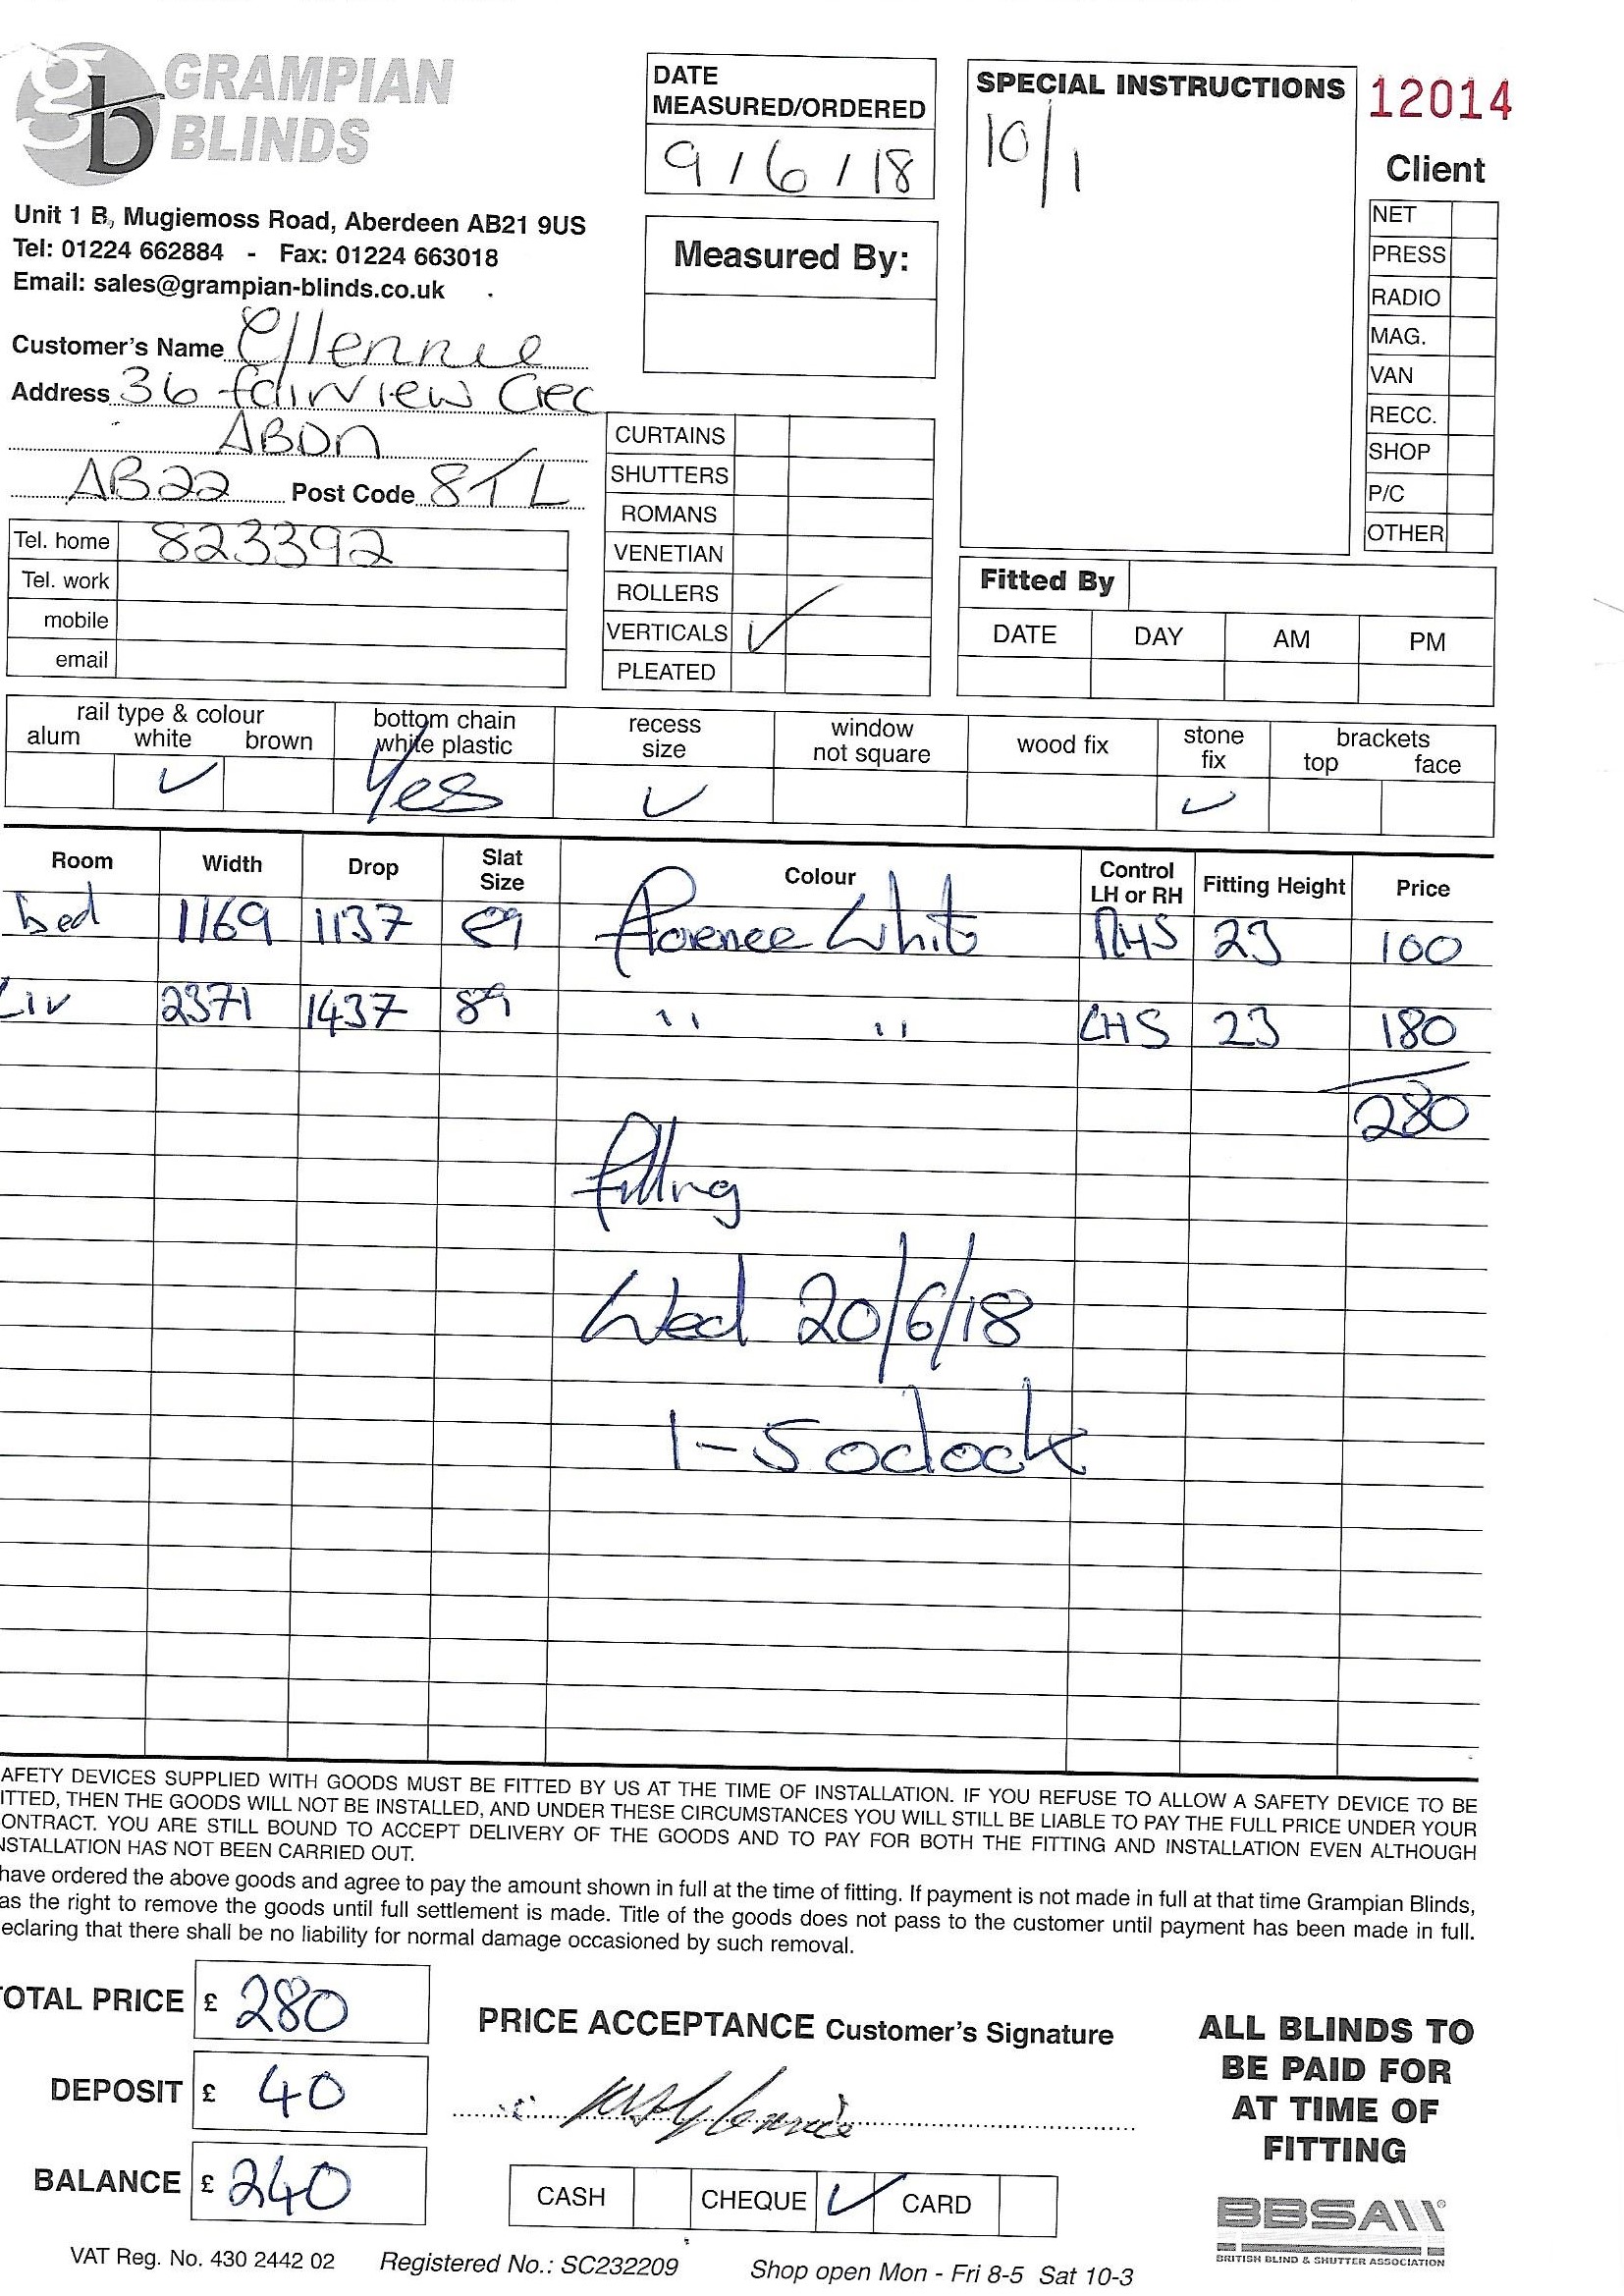 gb GRAMPIAN
BLINDS
Unit 1 B, Mugiemoss Road, Aberdeen AB21 9US
Tel: 01224 662884 - Fax: 01224 663018
Email: sales@grampian-blinds.co.uk
Customer's Name
Address 36 fairview Crec
ABDN
AB22 Post Code 8TL
Tel. home 823392
Tel. work
mobile
email
DATE
MEASURED/ORDERED
9/6/18
Measured By:
SPECIAL INSTRUCTIONS
10/1
12014
Client
NET
PRESS
RADIO
MAG.
VAN
RECC.
SHOP
P/C
OTHER
CURTAINS
SHUTTERS
ROMANS
VENETIAN
ROLLERS
VERTICALS ✓
PLEATED
Fitted By
DATE DAY AM PM
rail type & colour
alum white brown
✓
bottom chain
white plastic
Yes
recess
size
✓
window
not square
wood fix
stone
fix
✓
brackets
top face
Room Width Drop Slat Size Colour Control LH or RH Fitting Height Price
bed 1169 1137 89 florence White RHS 23 100
Liv 2371 1437 89 " " LHS 23 180
280
fitting
Wed 20/6/18
1-5 oclock
AFETY DEVICES SUPPLIED WITH GOODS MUST BE FITTED BY US AT THE TIME OF INSTALLATION. IF YOU REFUSE TO ALLOW A SAFETY DEVICE TO BE
ITTED, THEN THE GOODS WILL NOT BE INSTALLED, AND UNDER THESE CIRCUMSTANCES YOU WILL STILL BE LIABLE TO PAY THE FULL PRICE UNDER YOUR
ONTRACT. YOU ARE STILL BOUND TO ACCEPT DELIVERY OF THE GOODS AND TO PAY FOR BOTH THE FITTING AND INSTALLATION EVEN ALTHOUGH
NSTALLATION HAS NOT BEEN CARRIED OUT.
have ordered the above goods and agree to pay the amount shown in full at the time of fitting. If payment is not made in full at that time Grampian Blinds,
as the right to remove the goods until full settlement is made. Title of the goods does not pass to the customer until payment has been made in full.
eclaring that there shall be no liability for normal damage occasioned by such removal.
OTAL PRICE £ 280
DEPOSIT £ 40
BALANCE £ 240
PRICE ACCEPTANCE Customer's Signature
CASH CHEQUE ✓ CARD
ALL BLINDS TO
BE PAID FOR
AT TIME OF
FITTING
BBSA
BRITISH BLIND & SHUTTER ASSOCIATION
VAT Reg. No. 430 2442 02 Registered No.: SC232209 Shop open Mon - Fri 8-5 Sat 10-3